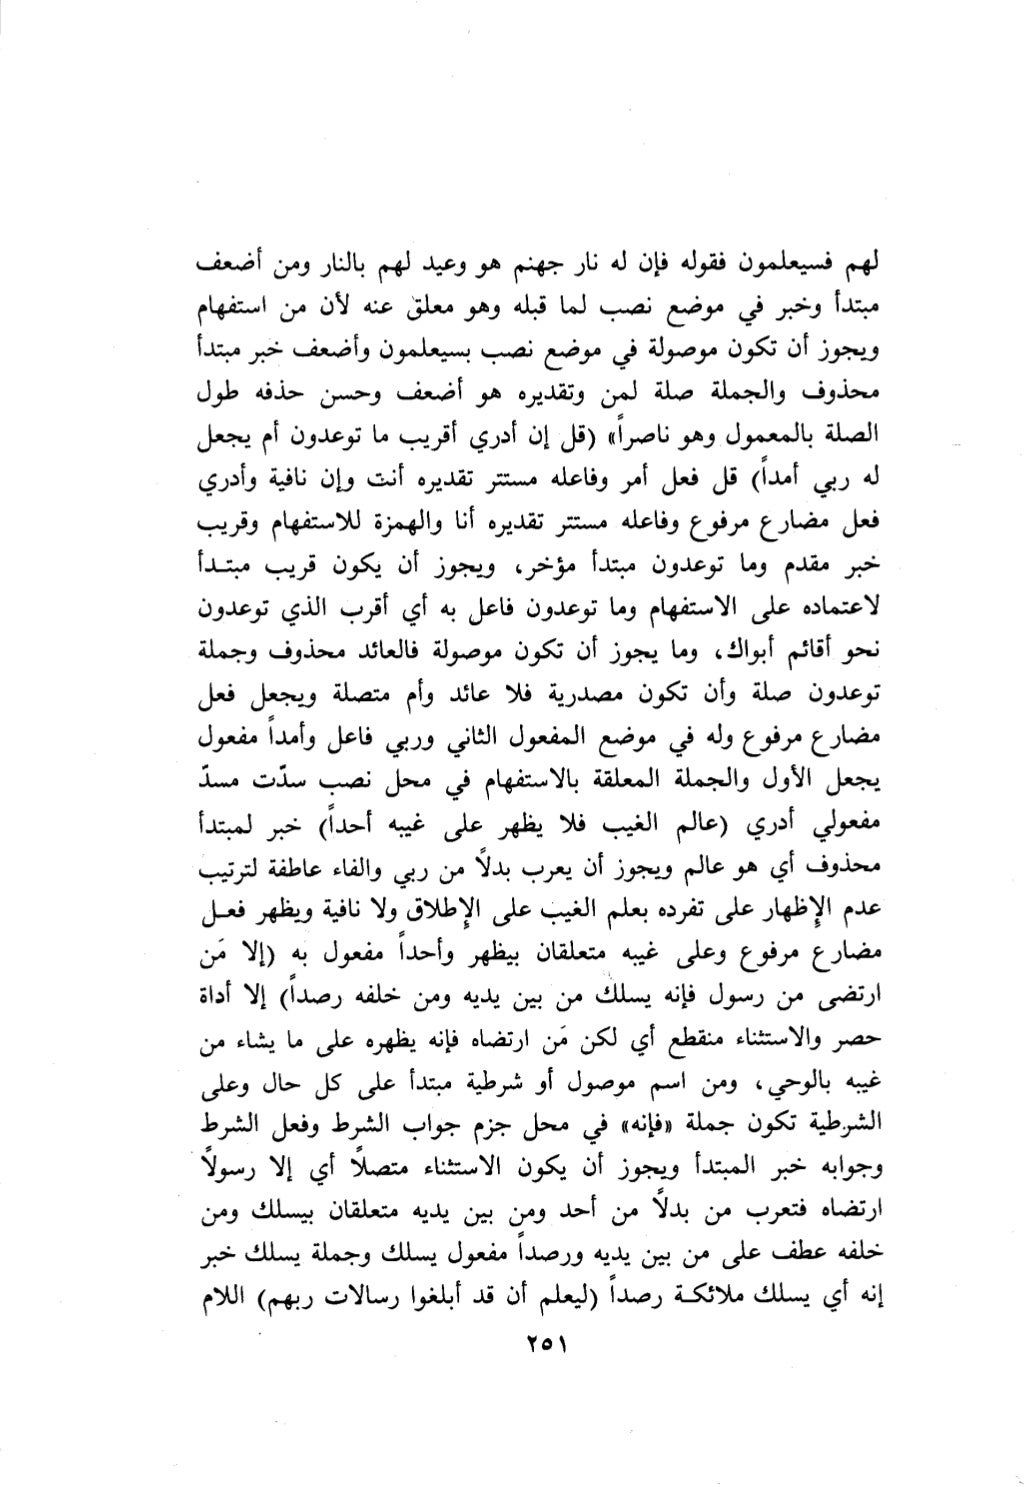 لهم فسيعلمون فقوله فإن له نار جهنم هو وعيد لهم بالنار ومن أضعف
مبتدأ وخبر في موضع نصب لما قبله وهو معلق عنه لأن من استفهام
ويجوز أن تكون موصولة في موضع نصب بسيعلمون وأضعف خبر مبتدأ
محذوف والجملة صلة لمن وتقديره هو أضعف وحسن حذفه طول
الصلة بالمعمول وهو ناصراً» (قل إن أدري أقريب ما توعدون أم يجعل
له ربي أمداً) قل فعل أمر وفاعله مستتر تقديره أنت وإن نافية وأدري
فعل مضارع مرفوع وفاعله مستتر تقديره أنا والهمزة للاستفهام وقريب
خبر مقدم وما توعدون مبتدأ مؤخر، ويجوز أن يكون قريب مبتدأ
لاعتماده على الاستفهام وما توعدون فاعل به أي أقرب الذي توعدون
نحو أقائم أبواك، وما يجوز أن تكون موصولة فالعائد محذوف وجملة
توعدون صلة وأن تكون مصدرية فلا عائد وأم متصلة ويجعل فعل
مضارع مرفوع وله في موضع المفعول الثاني وربي فاعل وأمداً مفعول
يجعل الأول والجملة المعلقة بالاستفهام في محل نصب سدّت مسدّ
مفعولي أدري (عالم الغيب فلا يظهر على غيبه أحداً) خبر لمبتدأ
محذوف أي هو عالم ويجوز أن يعرب بدلاً من ربي والفاء عاطفة لترتيب
عدم الإظهار على تفرده بعلم الغيب على الإطلاق ولا نافية ويظهر فعل
مضارع مرفوع وعلى غيبه متعلقان بيظهر وأحداً مفعول به (إلا مَن
ارتضى من رسول فإنه يسلك من بين يديه ومن خلفه رصداً) إلا أداة
حصر والاستثناء منقطع أي لكن مَن ارتضاه فإنه يظهره على ما يشاء من
غيبه بالوحي، ومن اسم موصول أو شرطية مبتدأ على كل حال وعلى
الشرطية تكون جملة «فإنه» في محل جزم جواب الشرط وفعل الشرط
وجوابه خبر المبتدأ ويجوز أن يكون الاستثناء متصلاً أي إلا رسولاً
ارتضاه فتعرب من بدلاً من أحد ومن بين يديه متعلقان بيسلك ومن
خلفه عطف على من بين يديه ورصداً مفعول يسلك وجملة يسلك خبر
إنه أي يسلك ملائكة رصداً (ليعلم أن قد أبلغوا رسالات ربهم) اللام
٢٥١